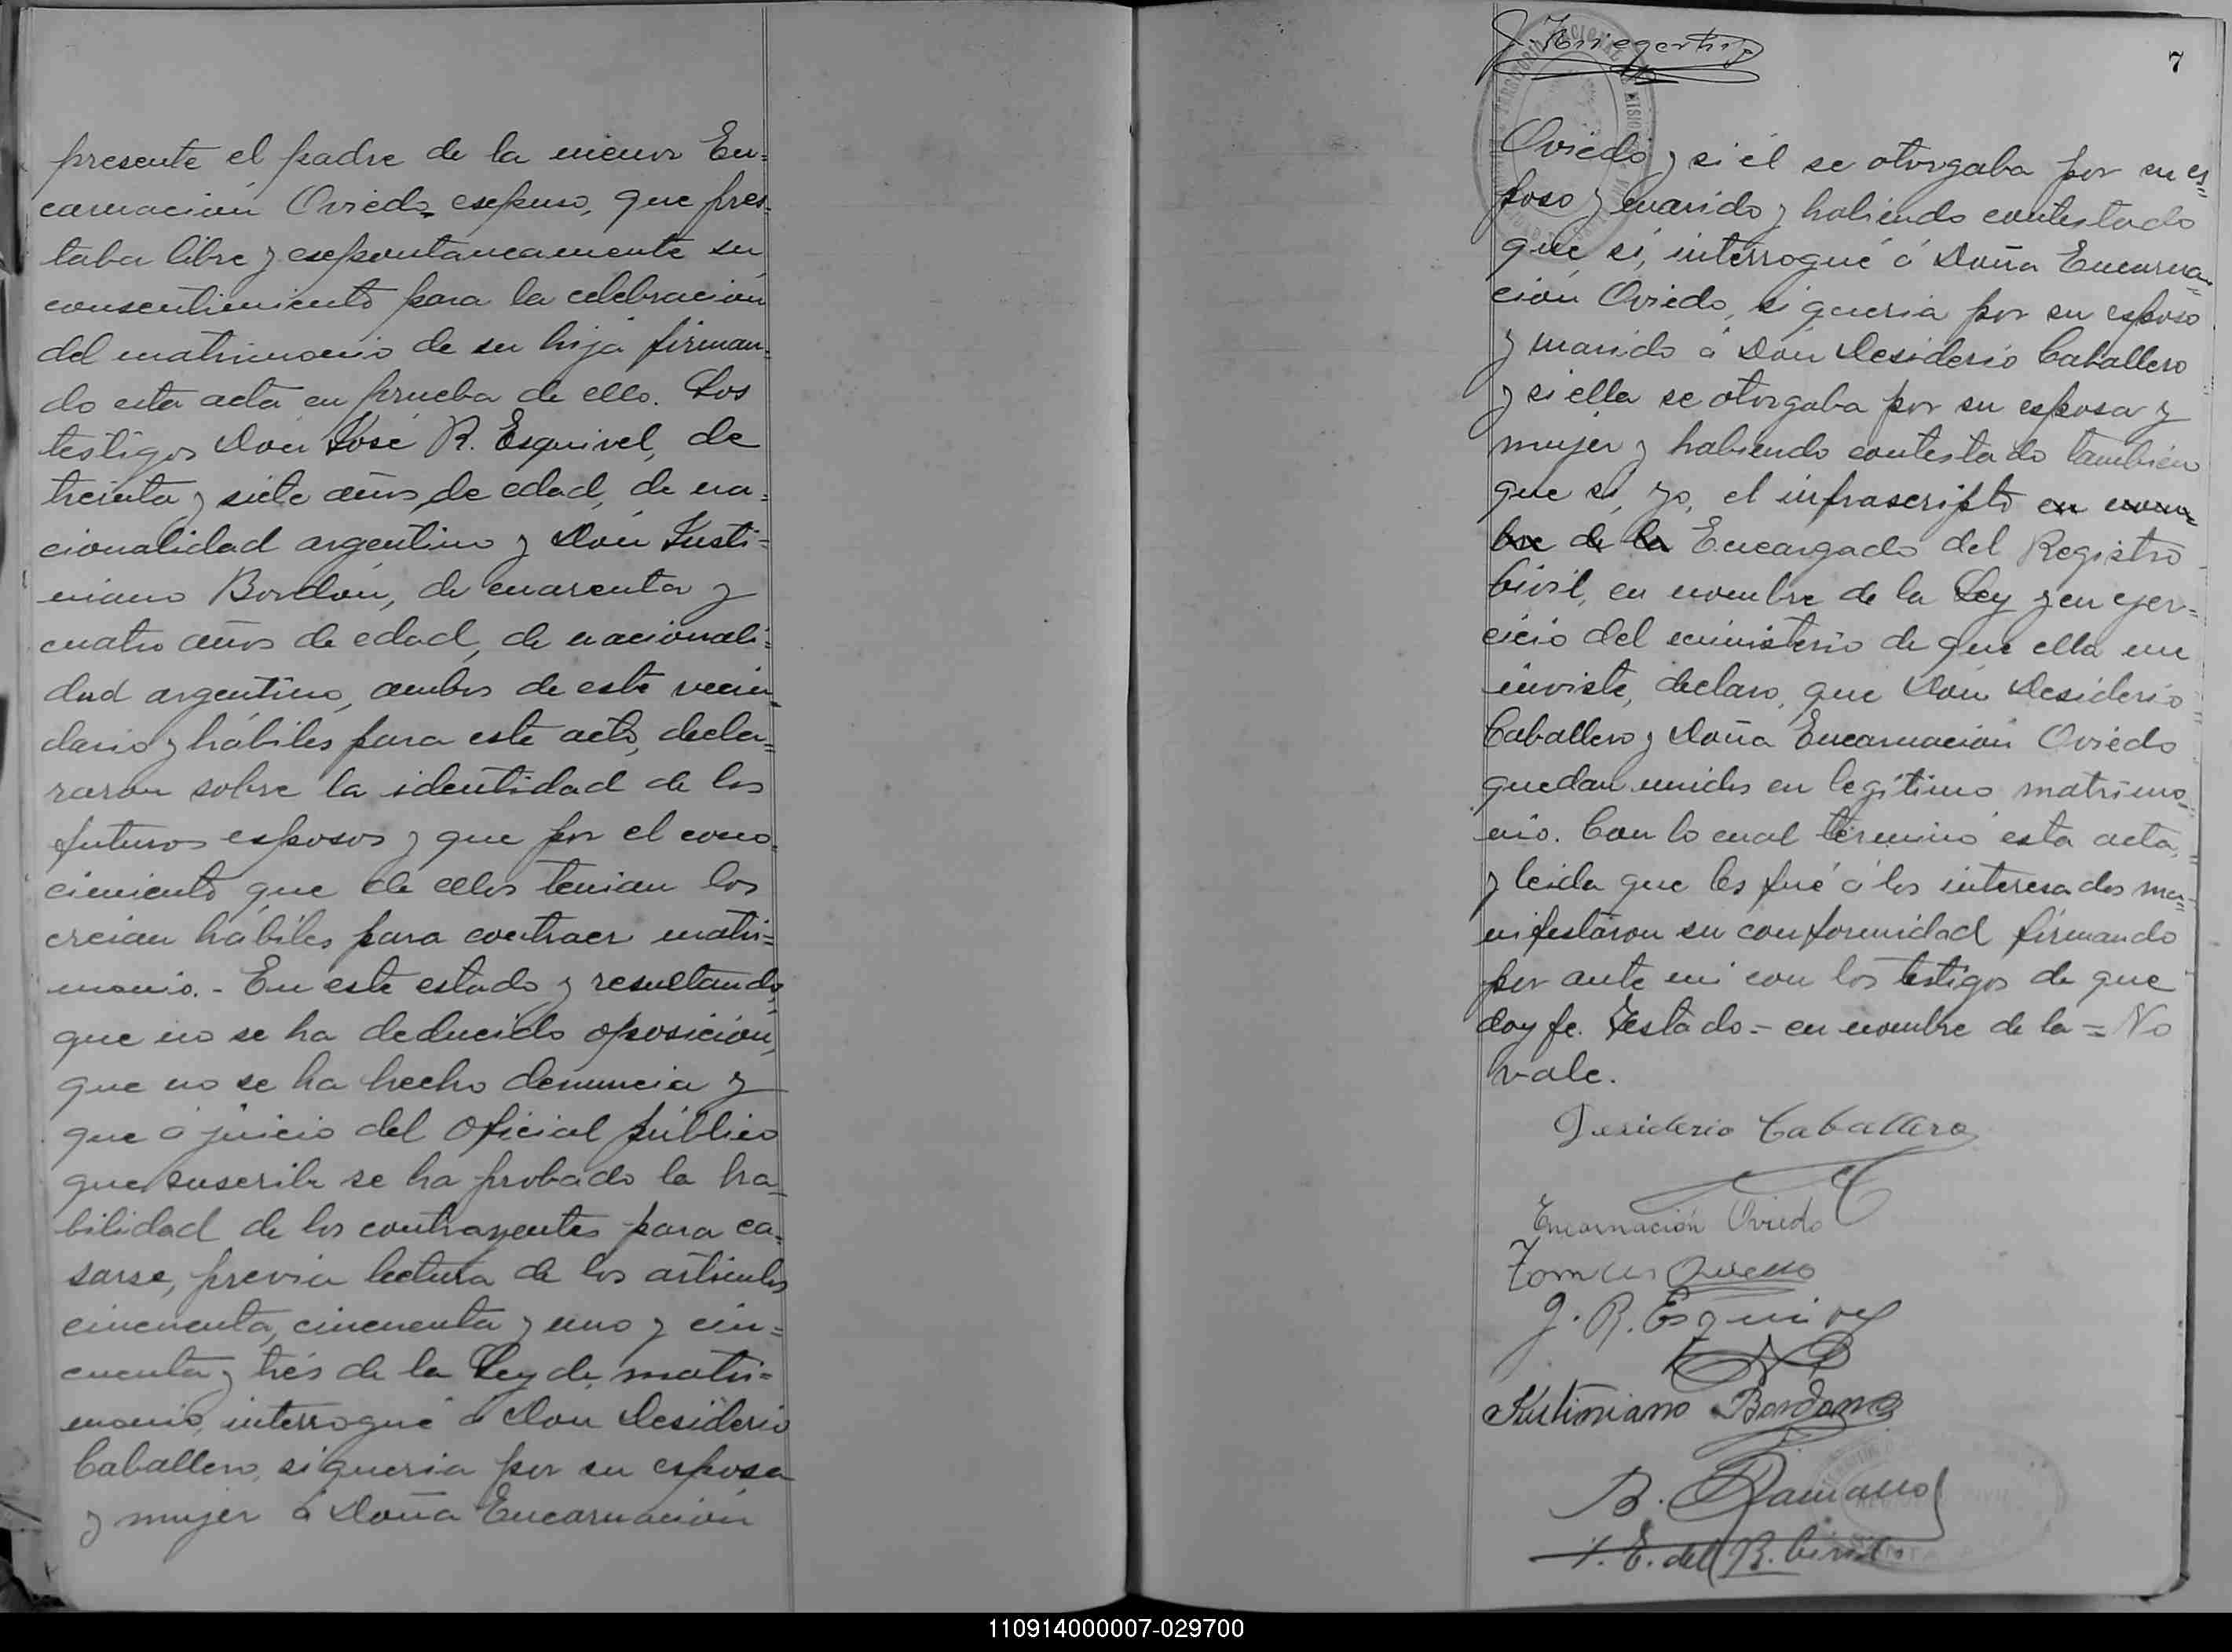 presente el padre de la menor En=
carnación Oviedo espuso, que pres=
taba libre y espontaneamente su
consentimiento para la celebracion
del matrimonio de su hija firman=
do esta acta en prueba de ello. Los
testigos Don José R. Esquivel, de
treinta y siete años de edad, de na=
cionalidad argentino y Don Justi=
niano Bordón, de cuarenta y
cuatro años de edad, de nacionali=
dad argentino, ambos de este vecin=
dario y hábiles para este acto, decla=
raron sobre la identidad de los
futuros esposos y que por el cono=
cimiento que de ellos tenian los
creian hábiles para contraer matri=
monio.- En este estado y resultando,
que no se ha deducido oposicion,
que no se ha hecho denuncia y
que á juicio del Oficial público
que suscribe se ha probado la ha=
bilidad de los contrayentes para ca=
sarse, previa lectura de los articulos
cincuenta, cincuenta y uno y cin=
cuenta y trés de la Ley de matri=
monio, interrogué á Don Desiderio
Caballero, si queria por su esposa
y mujer á Doña Encarnación
7
Oviedo y si él se otorgaba por su es=
poso y marido y habiendo contestado
que si, interrogué á Doña Encarna=
ción Oviedo, si queria por su esposo
y marido á Don Desiderio Caballero
y si ella se otorgaba por su esposa y
mujer y habiendo contestado tambien
que si, yo, el infrascripto en nom=
bre de la Encargado del Registro
Civil, en nombre de la Ley y en ejer=
cicio del ministerio de que ella me
inviste, declaro, que Don Desiderio
Caballero y Doña Encarnación Oviedo
quedan unidos en legítimo matrimo=
nio. Con lo cual terminó esta acta,
y leida que les fué á los interesados ma=
nifestaron su conformidad firmando
por ante mi con los testigos de que
doy fe. Testado = en nombre de la = No
vale.
Desiderio Caballero
Encarnación Oviedo
Tomas Oviedo
J. R. Esquivel
Justiniano Bordon
B.
E. del R. Civil
110914000007-029700